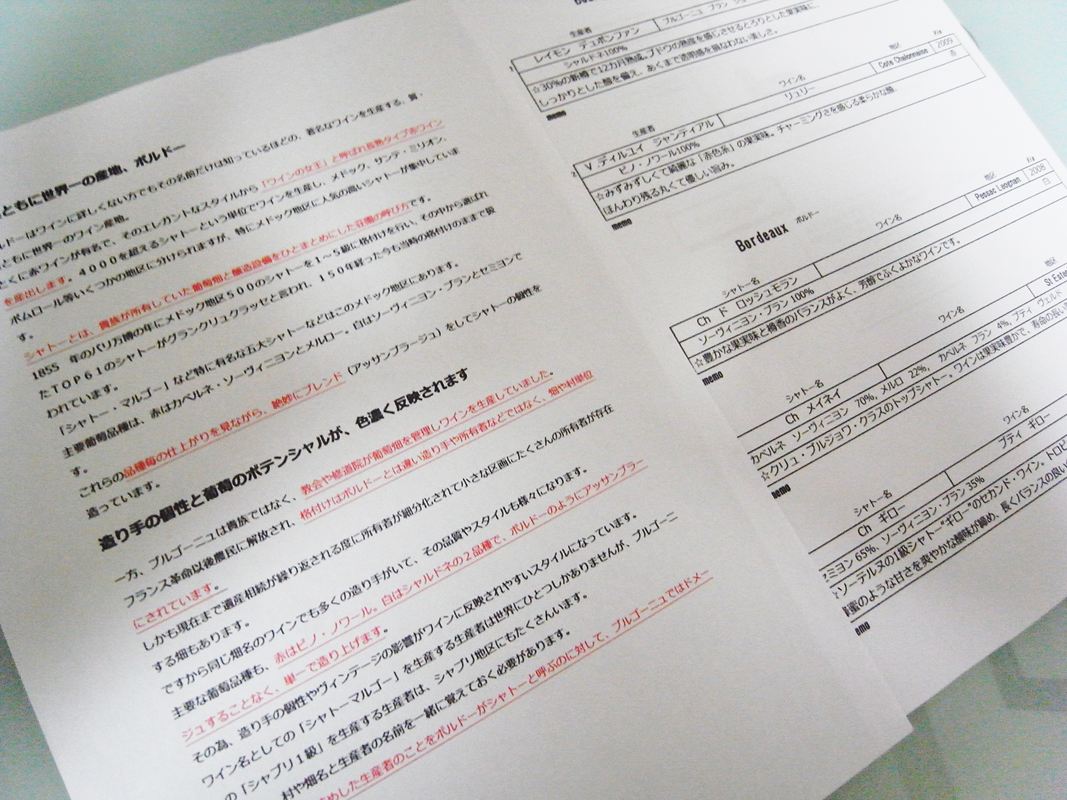 ともに世界一の産地、ボルドー
ルドーはワインに詳しくない方でもその名前だけは知っているほどの、著名なワインを生産する、質・
ともに世界一のワイン産地。
とくに赤ワインが有名で、そのエレガントなスタイルから「ワインの女王」と呼ばれ長熟タイプ赤ワイン
を産出します。4000を超えるシャトーという単位でワインを生産し、メドック、サンテ・ミリオン、
ポムロール等いくつかの地区に分けられますが、特にメドック地区に人気の高いシャトーが集中していま
す。
シャトーとは、貴族が所有していた葡萄畑と醸造設備をひとまとめにした荘園の呼び方です。
1855 年のパリ万博の年にメドック地区500のシャトーを1～5級に格付けを行い、その中から選ばれ
たTOP61のシャトーがグランクリュクラッセと言われ、150年経った今も当時の格付けのままで扱
われています。
「シャトー・マルゴー」など特に有名な五大シャトーなどはこのメドック地区にあります。
主要葡萄品種は、赤はカベルネ・ソーヴィニヨンとメルロー。白はソーヴィニヨン・ブランとセミヨンで
す。
これらの品種毎の仕上がりを見ながら、絶妙にブレンド（アッサンブラージュ）をしてシャトーの個性を
造っています。
造り手の個性と葡萄のポテンシャルが、色濃く反映されます
一方、ブルゴーニュは貴族ではなく、教会や修道院が葡萄畑を管理しワインを生産していました。
フランス革命以後農民に解放され、格付けはボルドーとは違い造り手や所有者などではなく、畑や村単位
にされています。
しかも現在まで遺産相続が繰り返される度に所有者が細分化されて小さな区画にたくさんの所有者が存在
する畑もあります。
ですから同じ畑名のワインでも多くの造り手がいて、その品質やスタイルも様々になります。
主要な葡萄品種も、赤はピノ・ノワール。白はシャルドネの2品種で、ボルドーのようにアッサンブラー
ジュすることなく、単一で造り上げます。
その為、造り手の個性やヴィンテージの影響がワインに反映されやすいスタイルになっています。
ワイン名としての「シャトーマルゴー」を生産する生産者は世界にひとつしかありませんが、ブルゴーニ
の「シャブリ1級」を生産する生産者は、シャブリ地区にもたくさんいます。
村や畑名と生産者の名前を一緒に覚えておく必要があります。
めした生産者のことをボルドーがシャトーと呼ぶのに対して、ブルゴーニュではドメー
生産者
レイモン デュポンファン
ブルゴーニュ ブラン
シャルドネ100%
☆30%の新樽で12カ月熟成。ブドウの熟度を感じさせるとろりとした果実味に、
しっかりとした酸を備え、あくまで透明感を損なわない美しさ。
memo
生産者 ワイン名 地区
1 V ディルユイ ジャンティアル リュリー Cote Chalonnaise 2009
ピノ・ノワール100% 赤
☆みずみずしくて綺麗な「赤色系」の果実味。チャーミングさを感じる柔らかな酸、
ほんわり残る丸くて優しい旨み。
memo
Bordeaux ボルドー
シャトー名 ワイン名 地区
Ch ド ロッシュモラン Pessac Leognan 2008
ソーヴィニヨン・ブラン 100% 白
☆豊かな果実味と樽香のバランスがよく、芳醇でふくよかなワインです。
memo
シャトー名 ワイン名 地区
Ch メイネイ
カベルネ ソーヴィニヨン 70%, メルロ 22%, カベルネ フラン 4%, プティ ヴェルド
☆クリュ・ブルジョワ・クラスのトップシャトー。ワインは果実味豊かで、寿命の長い
memo
シャトー名 ワイン名
Ch ギロー プティ ギロー
セミヨン 65%, ソーヴィニヨン・ブラン 35%
ソーテルヌの1級シャトー“ギロー”のセカンド・ワイン。トロピ
蜜のような甘さを爽やかな酸味が締め、長くバランスの良い
emo